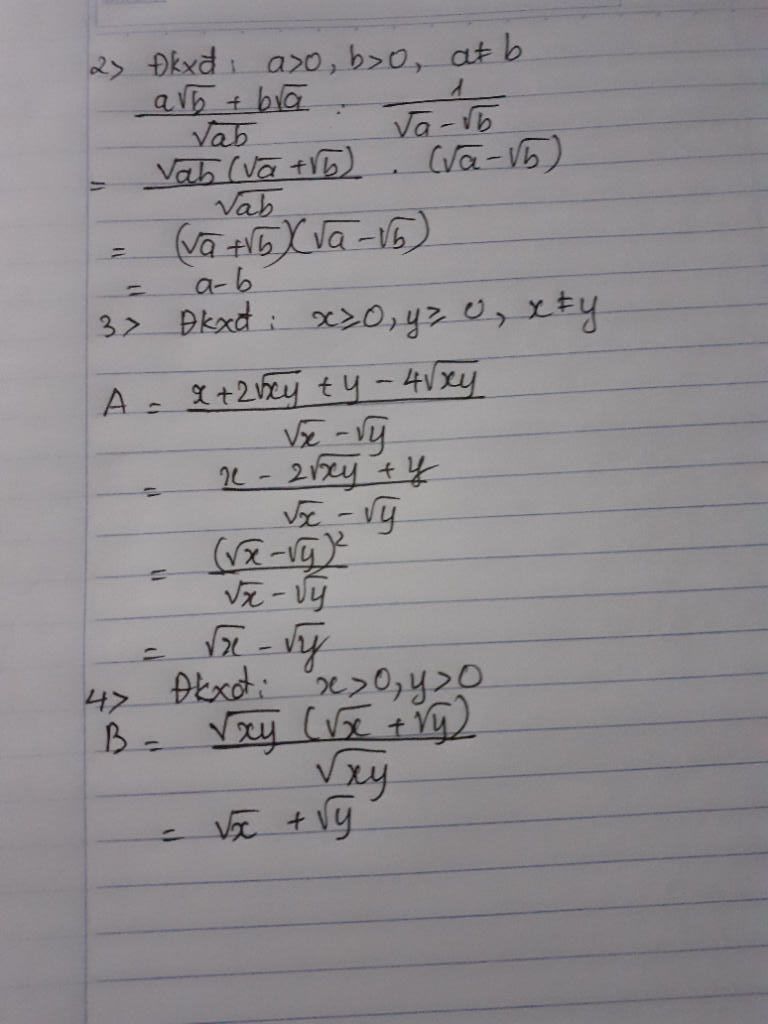 2> Đkxđ: a>0, b>0, a≠b
(a√b + b√a)/√ab : 1/(√a - √b)
= √ab(√a + √b)/√ab . (√a - √b)
= (√a + √b)(√a - √b)
= a - b
3> Đkxđ: x≥0, y≥0, x≠y
A = (x + 2√xy + y - 4√xy)/(√x - √y)
= (x - 2√xy + y)/(√x - √y)
= (√x - √y)²/(√x - √y)
= √x - √y
4> Đkxđ: x>0, y>0
B = √xy (√x + √y)/√xy
= √x + √y